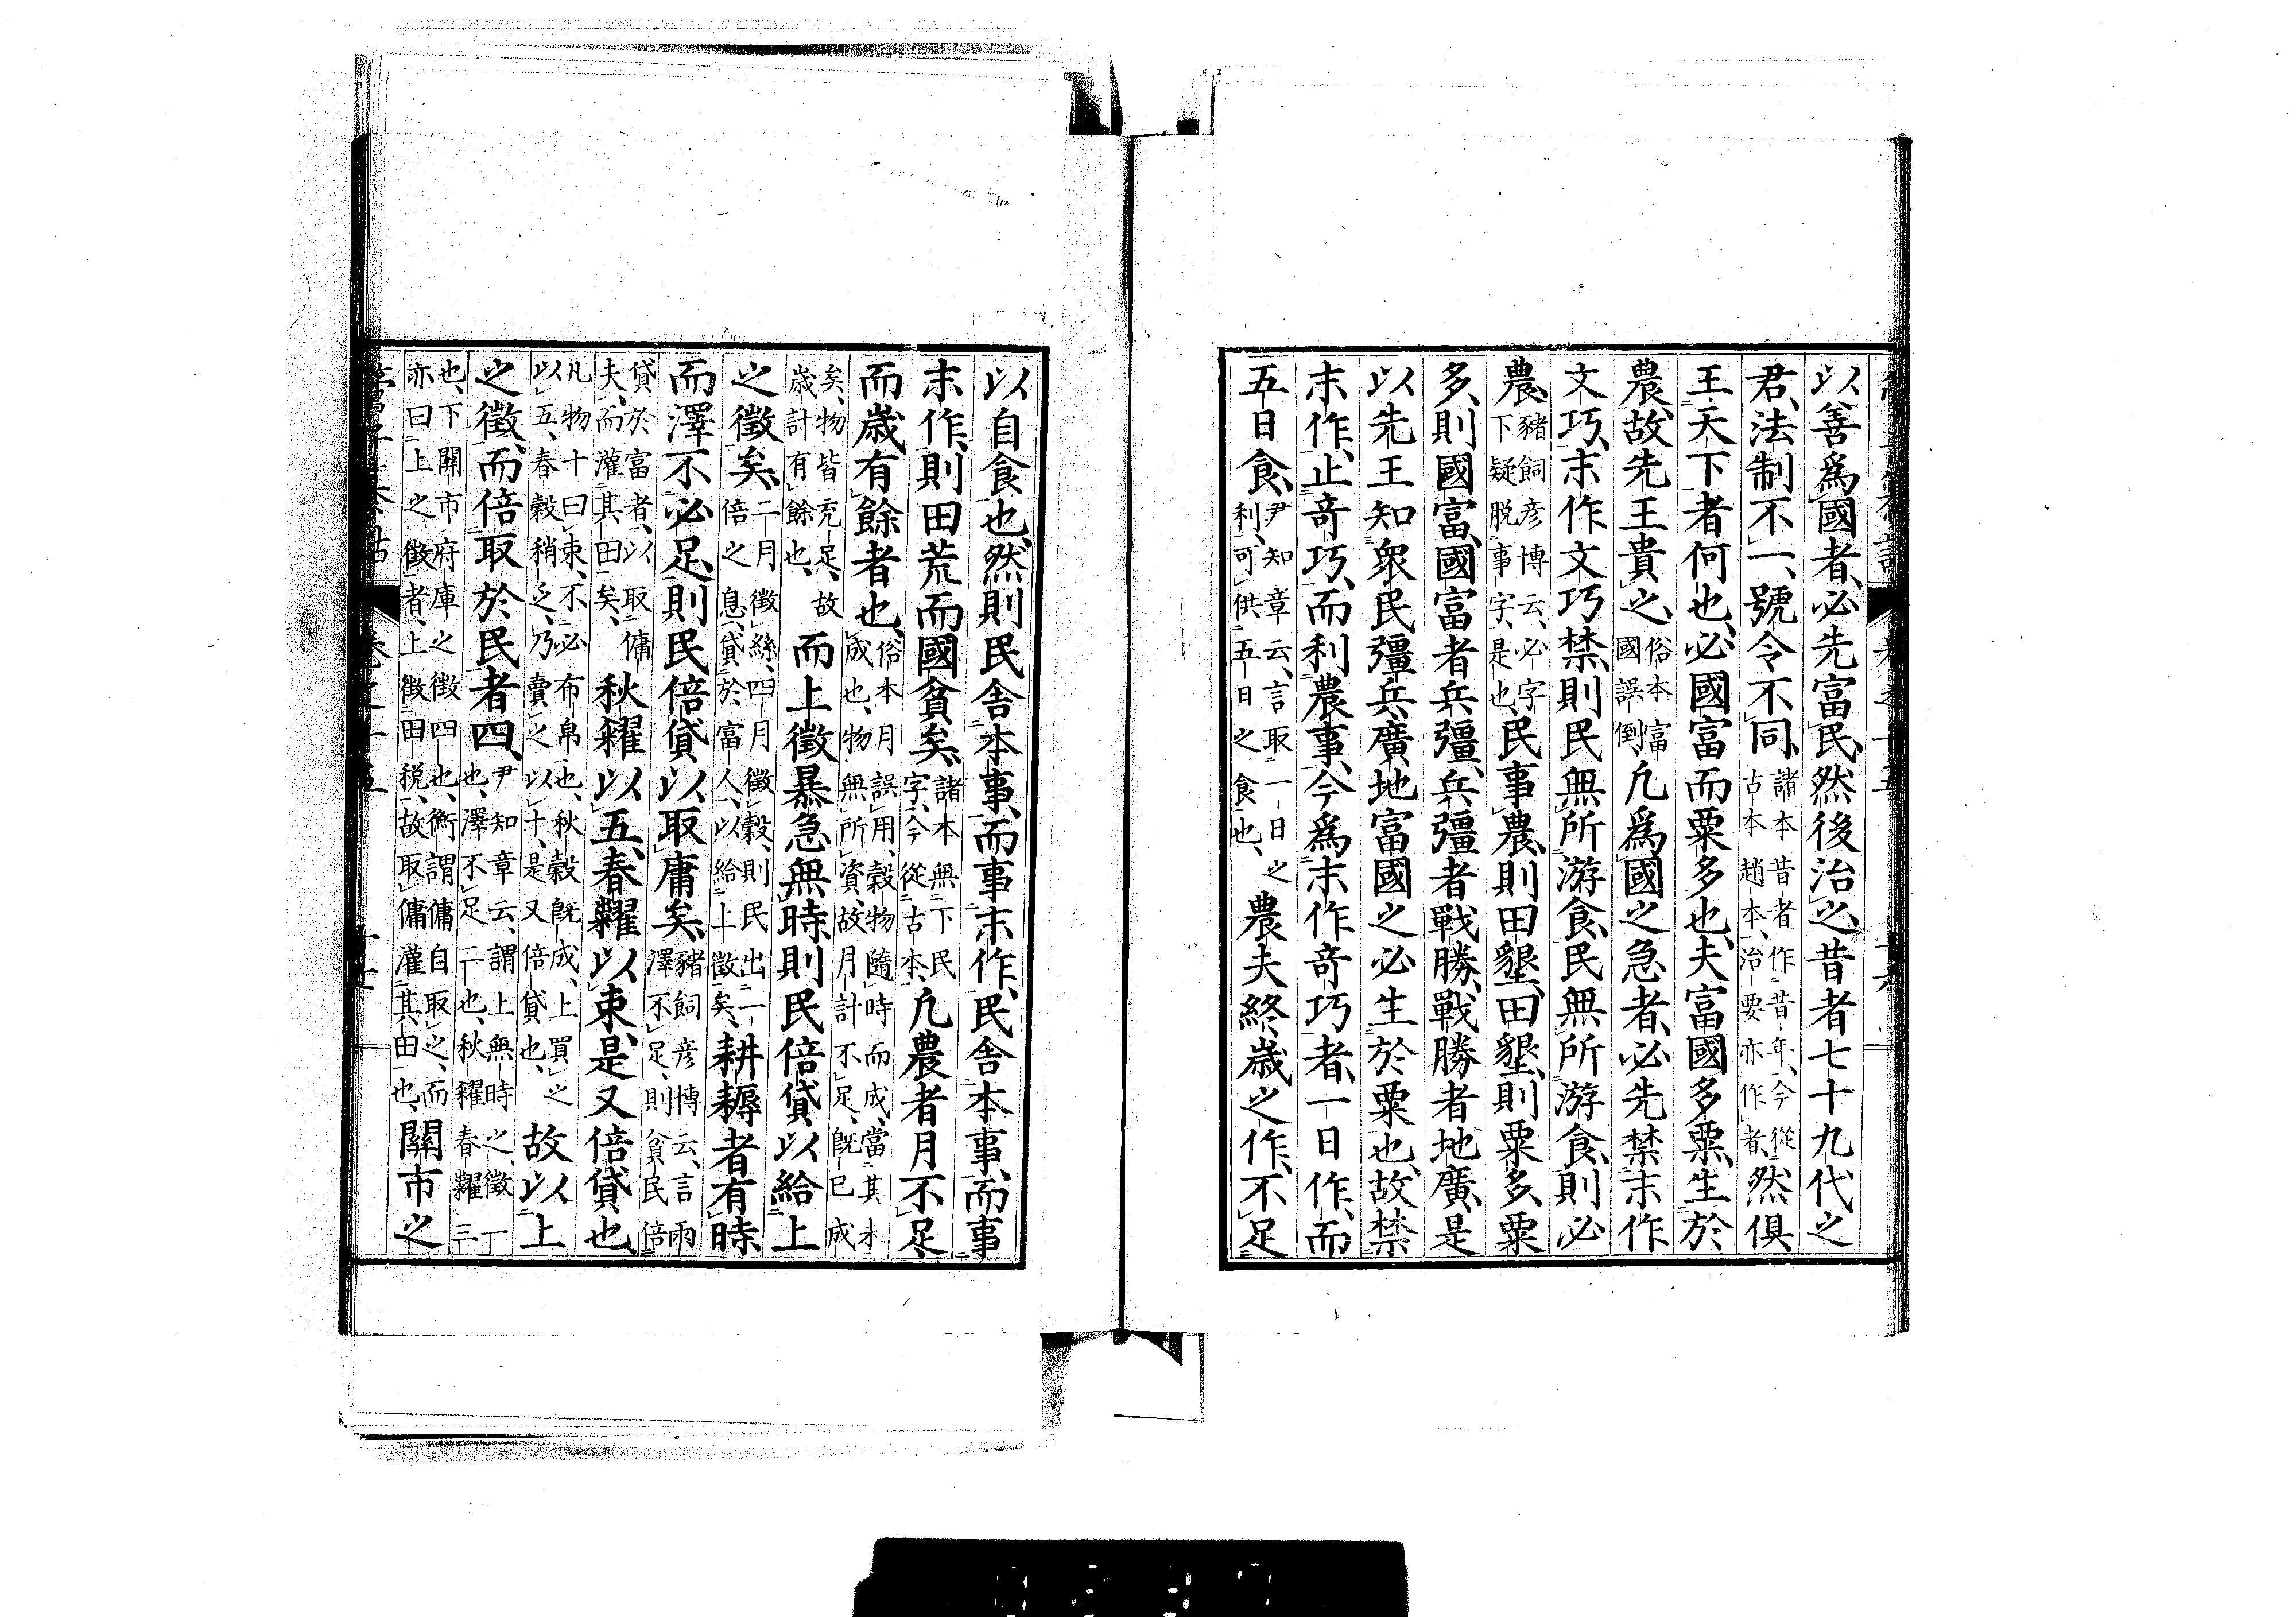 以善爲國者、必先富民、然後治之、昔者七十九代之
君、法制不一、號令不同、諸本昔者作昔年、今從古本趙本、治要亦作者、然俱
王天下者何也、必國富而粟多也、夫富國多粟、生於
農、故先王貴之、俗本富國誤倒、凡爲國之急者、必先禁末作
文巧、末作文巧禁、則民無所游食、民無所游食、則必
農、豬飼彦博云、必字下疑脱事字、是也、民事農、則田墾、田墾、則粟多、粟
多、則國富、國富者兵彊、兵彊者戰勝、戰勝者地廣、是
以先王知衆民彊兵、廣地富國之必生於粟也、故禁
末作、止奇巧、而利農事、今爲末作奇巧者、一日作、而
五日食、尹知章云、言取一日之利、可供五日之食也、農夫終歳之作、不足
以自食也、然則民舎本事、而事末作、民舎本事、而事
末作、則田荒而國貧矣、諸本無下民字、今從古本、凡農者月不足、
而歳有餘者也、俗本月誤用、穀物隨時而成、當其未成也、物無所資、故月計不足、既已成
矣、物皆充足、故歳計有餘也、而上徵暴急無時、則民倍貸以給上
之徵矣、二月徵絲、四月徵穀、則民出一倍之息、貸於富人、以給上徵矣、耕耨者有時、
而澤不必足、則民倍貸以取庸矣、豬飼彦博云、言雨澤不足、則貧民倍
貸於富者、以取傭夫、而灌其田矣、秋糴以五、春糶以束、是又倍貸也、
凡物十曰束、不必布帛也、秋穀既成、上買之以五、春穀稍乏、乃賣之以十、是又倍貸也、故以上
之徵、而倍取於民者四、尹知章云、謂上無時之徵一也、澤不足二也、秋糴春糶三
也、下關市府庫之徵四也、衡謂傭自取之、而亦曰上之徵者、上徵田税、故取傭灌其田也、關市之